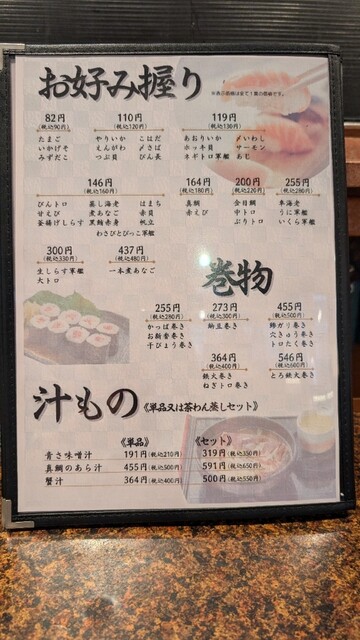 お好み握り
※表示価格は全て1貫の価格です。
82円
(税込90円)
たまご
いかげそ
みずだこ
110円
(税込120円)
やりいか こはだ
えんがわ 〆さば
つぶ貝 びん長
119円
(税込130円)
あおりいか 〆いわし
ホッキ貝 サーモン
ネギトロ軍艦 あじ
146円
(税込160円)
びんトロ 蒸し海老 はまち
甘えび 煮あなご 赤貝
釜揚げしらす 黒鮪赤身 帆立
わさびとびっこ軍艦
164円
(税込180円)
真鯛
赤えび
200円
(税込220円)
金目鯛
中トロ
ぶりトロ
255円
(税込280円)
車海老
うに軍艦
いくら軍艦
300円
(税込330円)
生しらす軍艦
大トロ
437円
(税込480円)
一本煮あなご
巻物
255円
(税込280円)
かっぱ巻き
お新香巻き
干ぴょう巻き
273円
(税込300円)
納豆巻き
455円
(税込500円)
鯵ガリ巻き
穴きゅう巻き
トロたく巻き
364円
(税込400円)
鉄火巻き
ねぎトロ巻き
546円
(税込600円)
とろ鉄火巻き
汁もの《単品又は茶わん蒸しセット》
《単品》 《セット》
青さ味噌汁 191円(税込210円) 319円(税込350円)
真鯛のあら汁 455円(税込500円) 591円(税込650円)
蟹汁 364円(税込400円) 500円(税込550円)